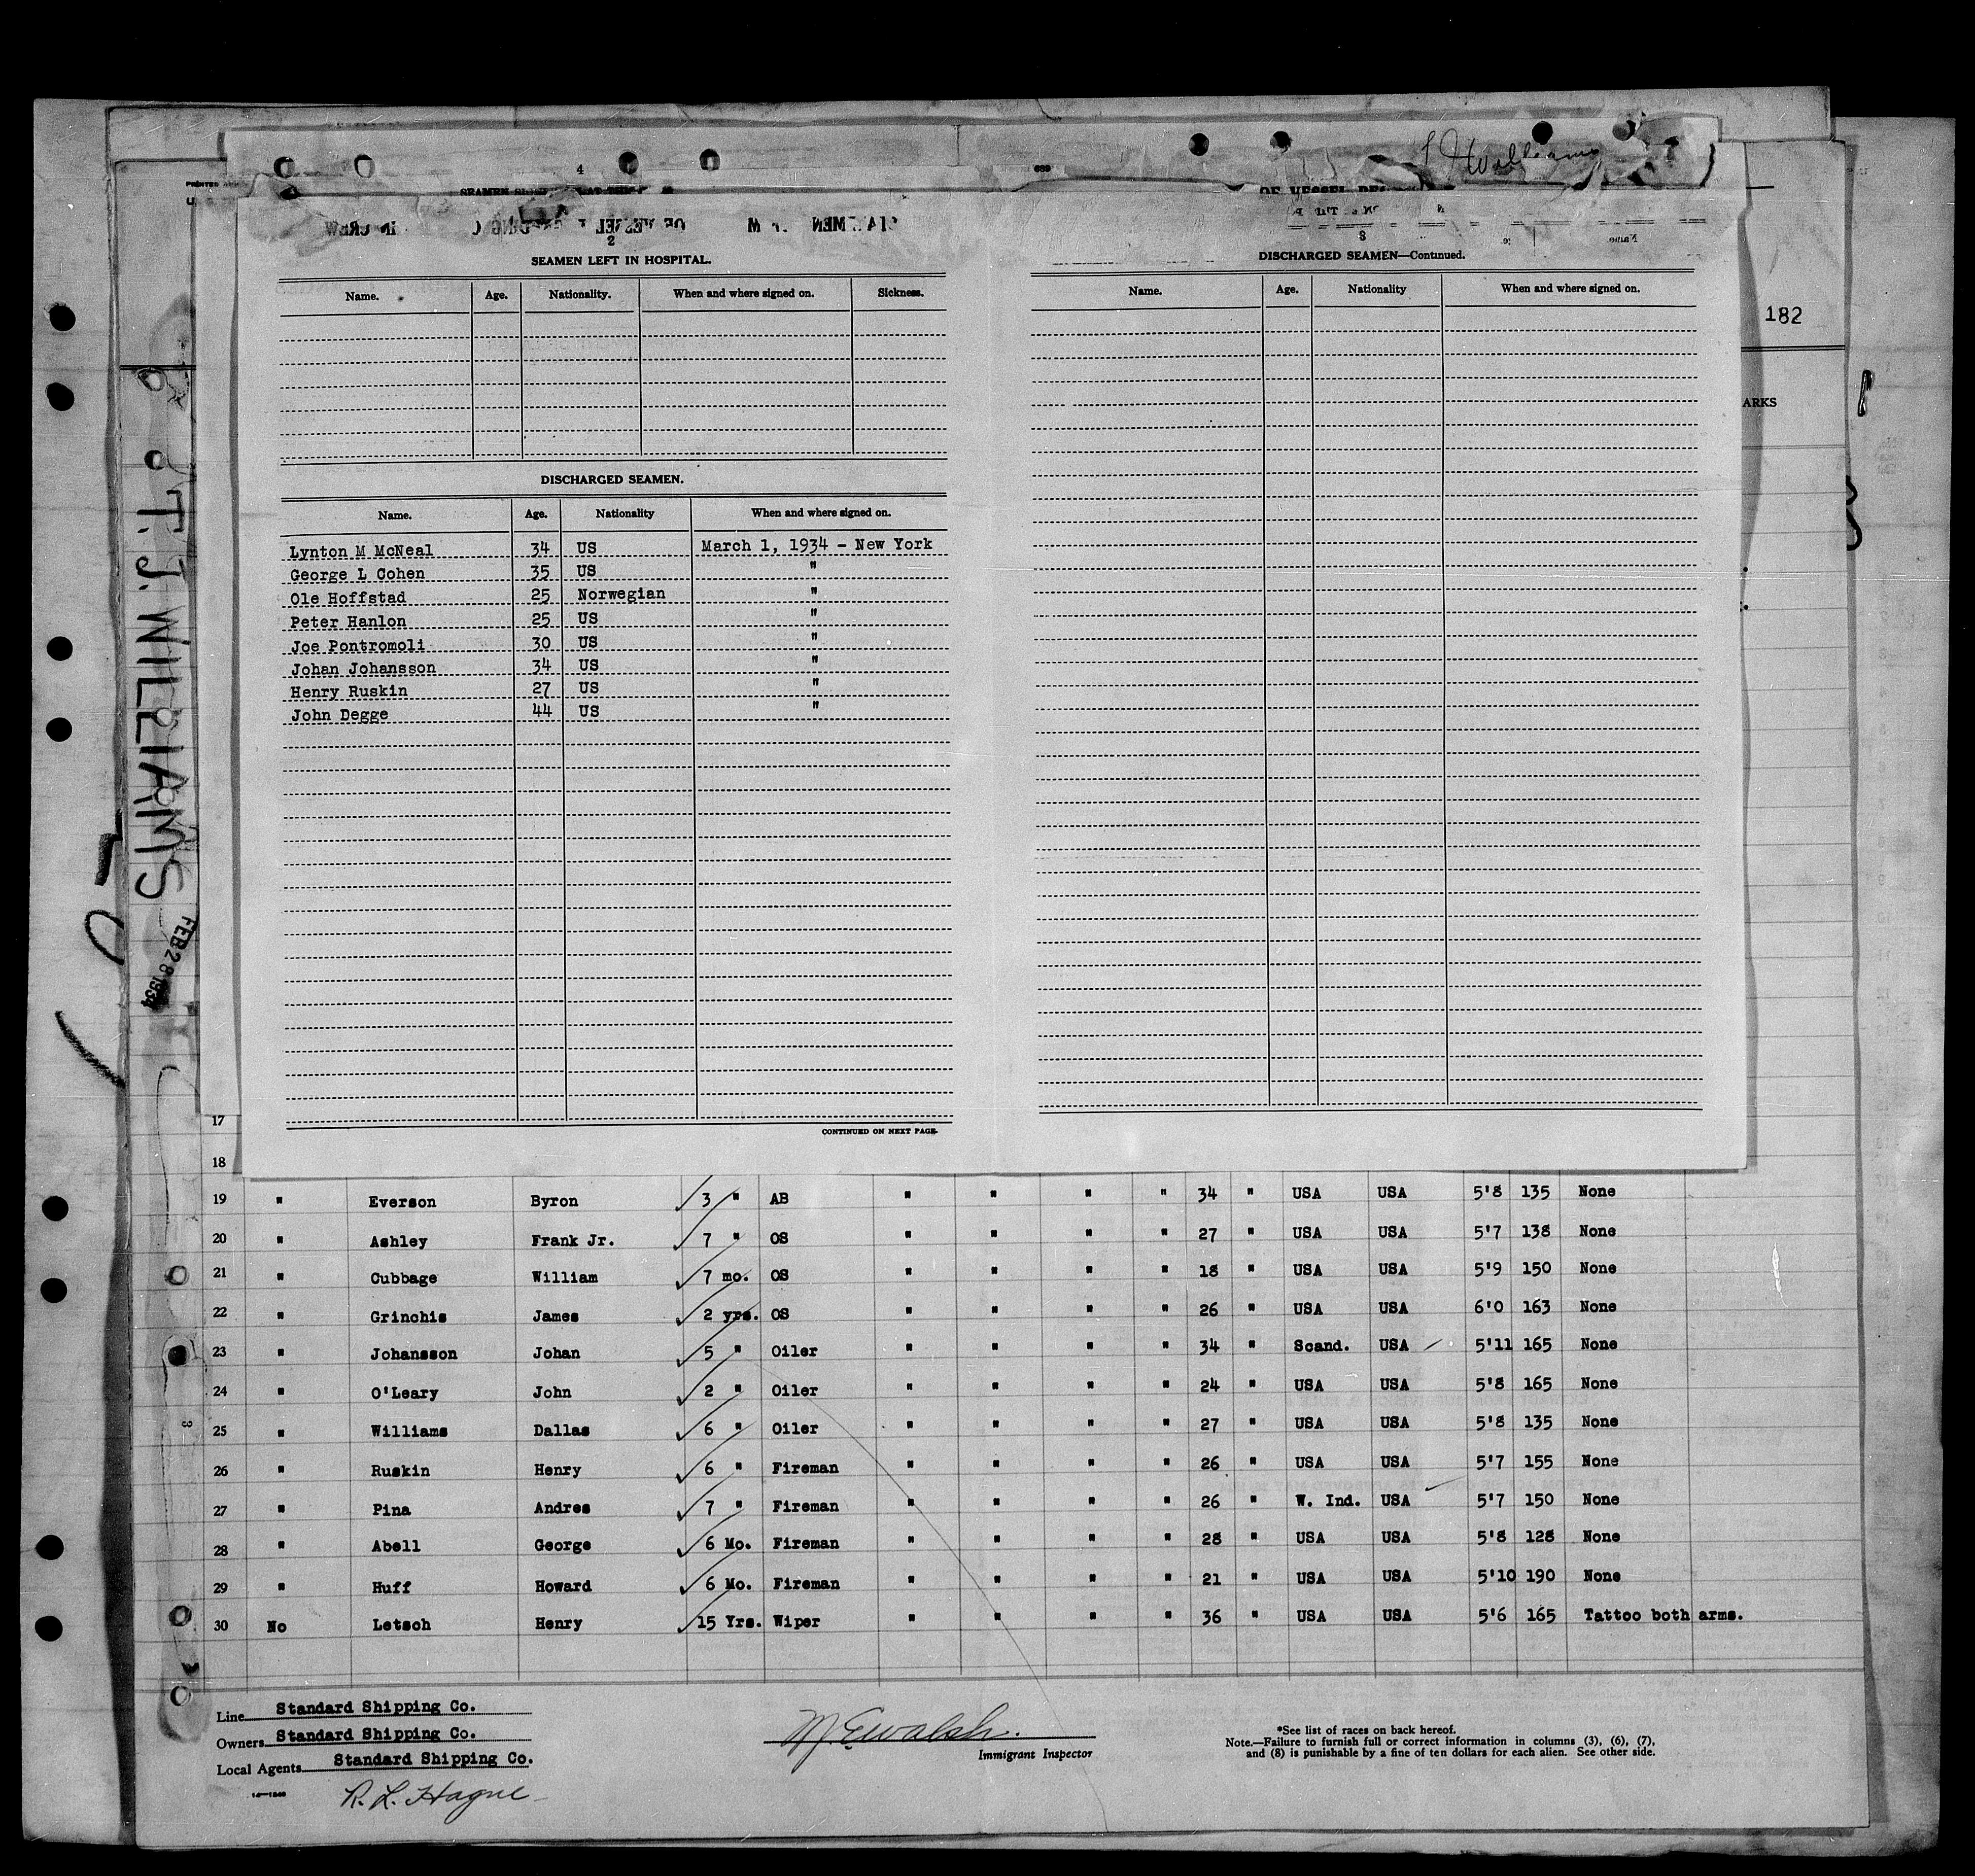 T J Williams
4
689
2
SEAMEN LEFT IN HOSPITAL.
Name. Age. Nationality. When and where signed on. Sickness.
DISCHARGED SEAMEN.
Name. Age. Nationality When and where signed on.
Lynton M McNeal 34 US March 1, 1934 - New York
George L Cohen 35 US "
Ole Hoffstad 25 Norwegian "
Peter Hanlon 25 US "
Joe Pontromoli 30 US "
Johan Johansson 34 US "
Henry Ruskin 27 US "
John Degge 44 US "
CONTINUED ON NEXT PAGE.
3
DISCHARGED SEAMEN—Continued.
Name. Age. Nationality When and where signed on.
182
ARKS
T. J. WILLIAMS
FEB 28 1934
17
18
19 " Everson Byron 3 " AB " " " " 34 " USA USA 5'8 135 None
20 " Ashley Frank Jr. 7 " OS " " " " 27 " USA USA 5'7 138 None
21 " Cubbage William 7 mo. OS " " " " 18 " USA USA 5'9 150 None
22 " Grinchis James 2 yrs. OS " " " " 26 " USA USA 6'0 163 None
23 " Johansson Johan 5 " Oiler " " " " 34 " Scand. USA 5'11 165 None
24 " O'Leary John 2 " Oiler " " " " 24 " USA USA 5'8 165 None
25 " Williams Dallas 6 " Oiler " " " " 27 " USA USA 5'8 135 None
26 " Ruskin Henry 6 " Fireman " " " " 26 " USA USA 5'7 155 None
27 " Pina Andres 7 " Fireman " " " " 26 " W. Ind. USA 5'7 150 None
28 " Abell George 6 Mo. Fireman " " " " 28 " USA USA 5'8 128 None
29 " Huff Howard 6 Mo. Fireman " " " " 21 " USA USA 5'10 190 None
30 No Letsch Henry 15 Yrs. Wiper " " " " 36 " USA USA 5'6 165 Tattoo both arms.
3
Line Standard Shipping Co.
Owners Standard Shipping Co.
Local Agents Standard Shipping Co.
R. L. Hague
M. E. Walsh.
Immigrant Inspector
*See list of races on back hereof.
Note.—Failure to furnish full or correct information in columns (3), (6), (7),
and (8) is punishable by a fine of ten dollars for each alien. See other side.